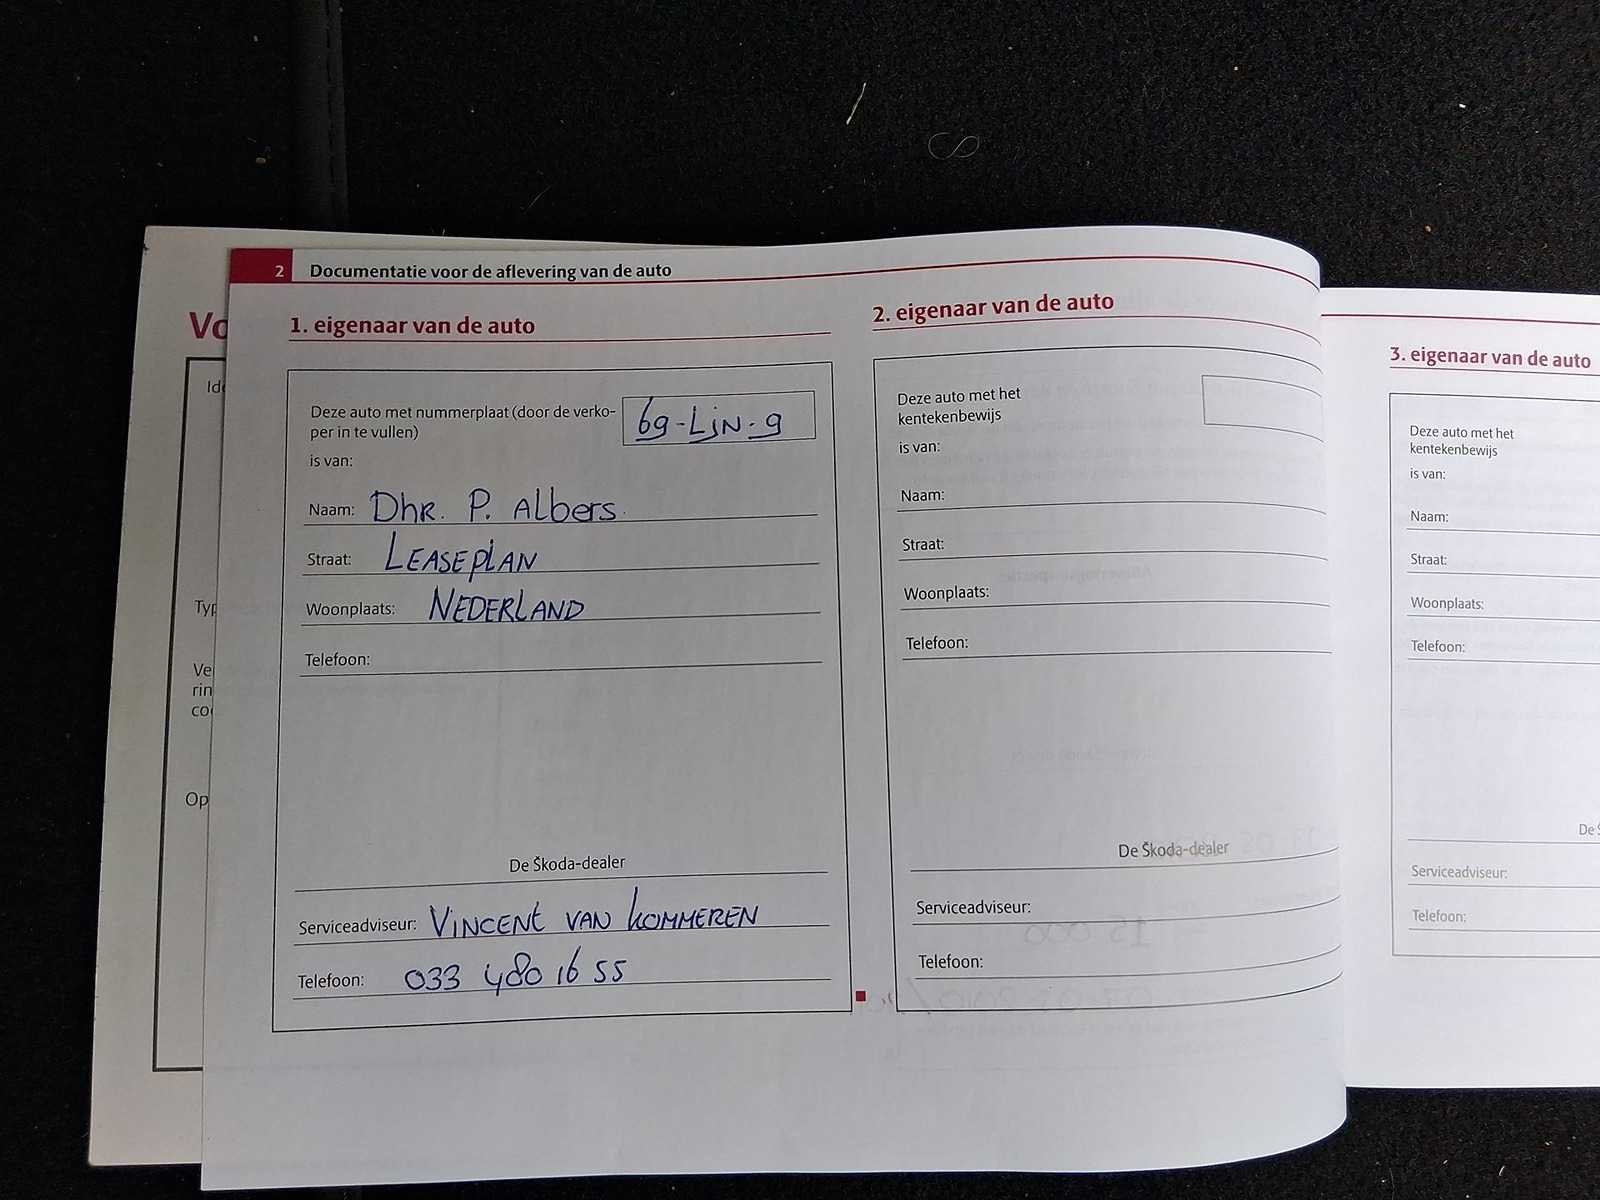 2 Documentatie voor de aflevering van de auto
Vo
Ide
Typ
Ve
rin
co
Op
1. eigenaar van de auto
Deze auto met nummerplaat (door de verko-
per in te vullen)
69-LJN-9
is van:
Naam: Dhr. P. Albers.
Straat: LEASEPLAN
Woonplaats: NEDERLAND
Telefoon:
De Škoda-dealer
Serviceadviseur: VINCENT VAN KOMMEREN
Telefoon: 033 480 16 55
2. eigenaar van de auto
Deze auto met het
kentekenbewijs
is van:
Naam:
Straat:
Woonplaats:
Telefoon:
De Škoda-dealer
Serviceadviseur:
Telefoon:
3. eigenaar van de auto
Deze auto met het
kentekenbewijs
is van:
Naam:
Straat:
Woonplaats:
Telefoon:
De Š
Serviceadviseur:
Telefoon: